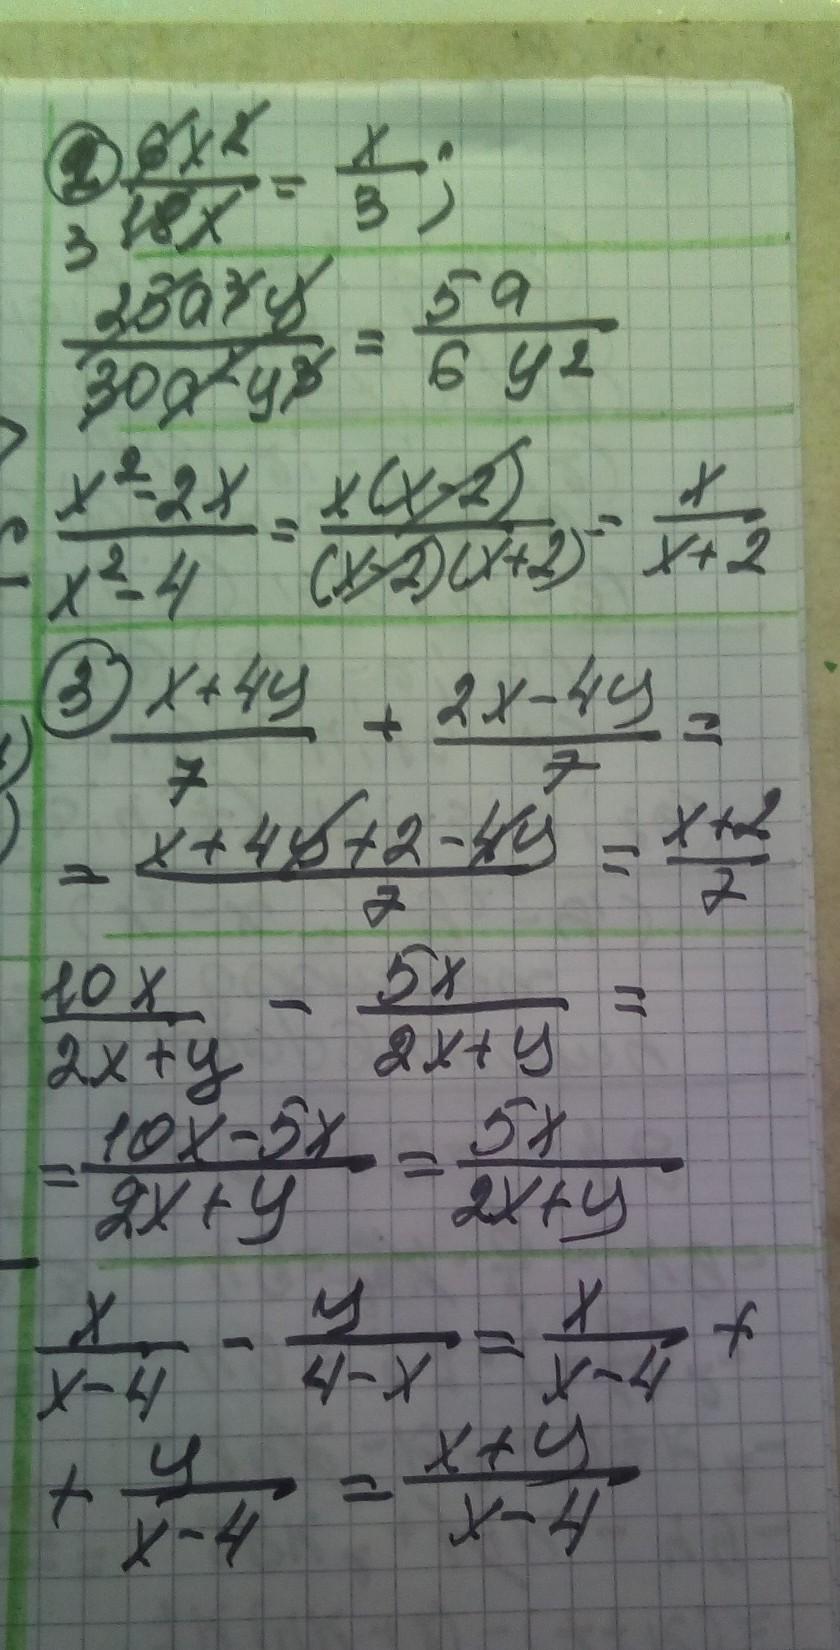 2 6x2/18x = x/3 ;
3
25a³y/30a²y3 = 5a/6y2
x²-2x/x²-4 = x(x-2)/(x-2)(x+2) = x/x+2
3 x+4y/7 + 2x-4y/7 =
= x+4y+2-4y/7 = x+2/7
10x/2x+y - 5x/2x+y =
= 10x-5x/2x+y = 5x/2x+y
x/x-4 - y/4-x = x/x-4 +
+ y/x-4 = x+y/x-4